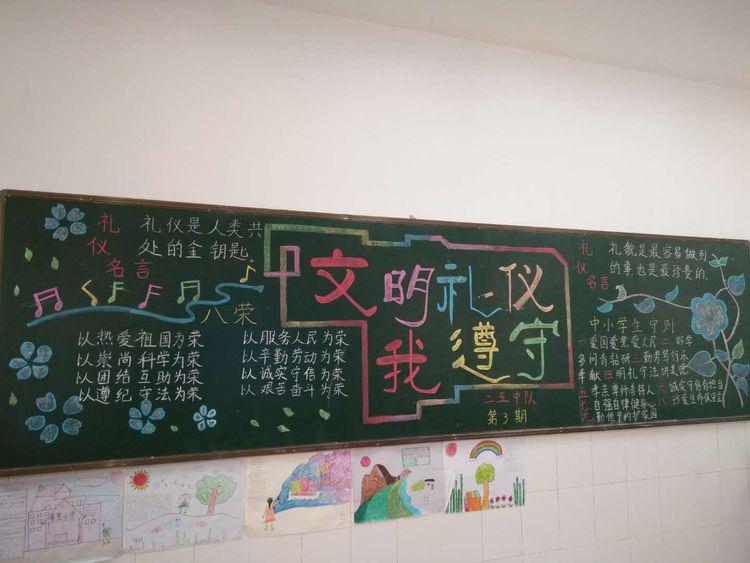 礼仪名言
礼仪是人类共
处的金钥匙。
八荣
以热爱祖国为荣
以崇尚科学为荣
以团结互助为荣
以遵纪守法为荣
以服务人民为荣
以辛勤劳动为荣
以诚实守信为荣
以艰苦奋斗为荣
文明礼仪
我遵守
二五中队
第3期
礼仪名言
礼貌是最容易做到
的事也是最珍贵的.
中小学生守则
一爱国爱党爱人民二好学
多问肯钻研三勤劳笃行乐
奉献四明礼守法讲美德
五孝亲尊师善待人六诚实守信有担当
七自强自律健身心八珍爱生命保安全
九勤俭节约护家园